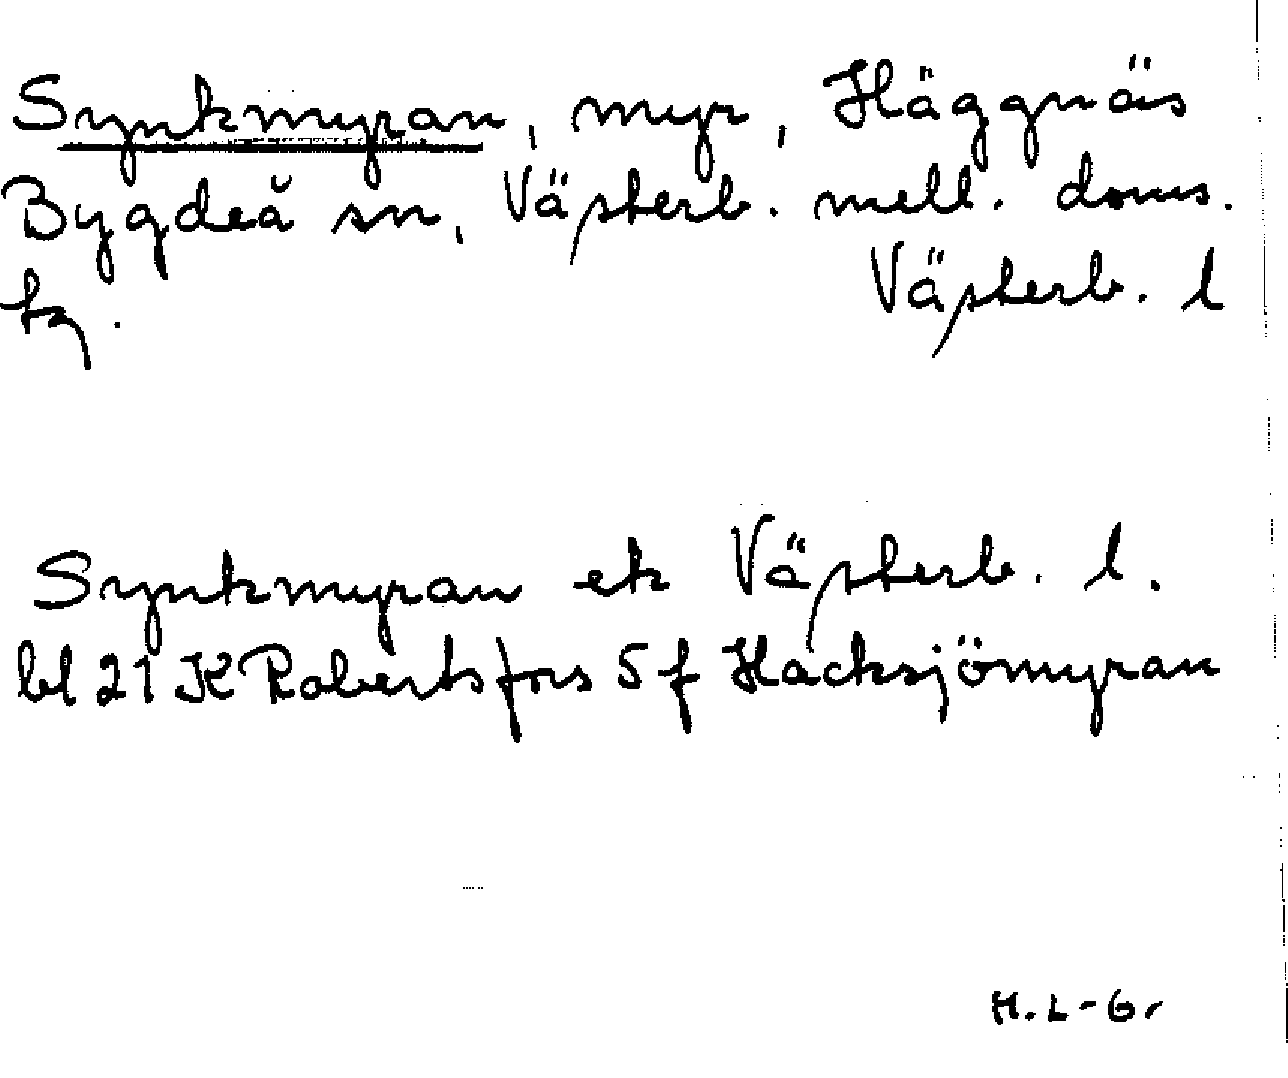 Synkmyran, myr, Häggnäs
Bygdeå sn, Västerb. mell. doms.
tg. Västerb. l
Synkmyran ek Västerb. l.
bl 21 K Robertsfors 5 f Hacksjömyran
H. L-G.